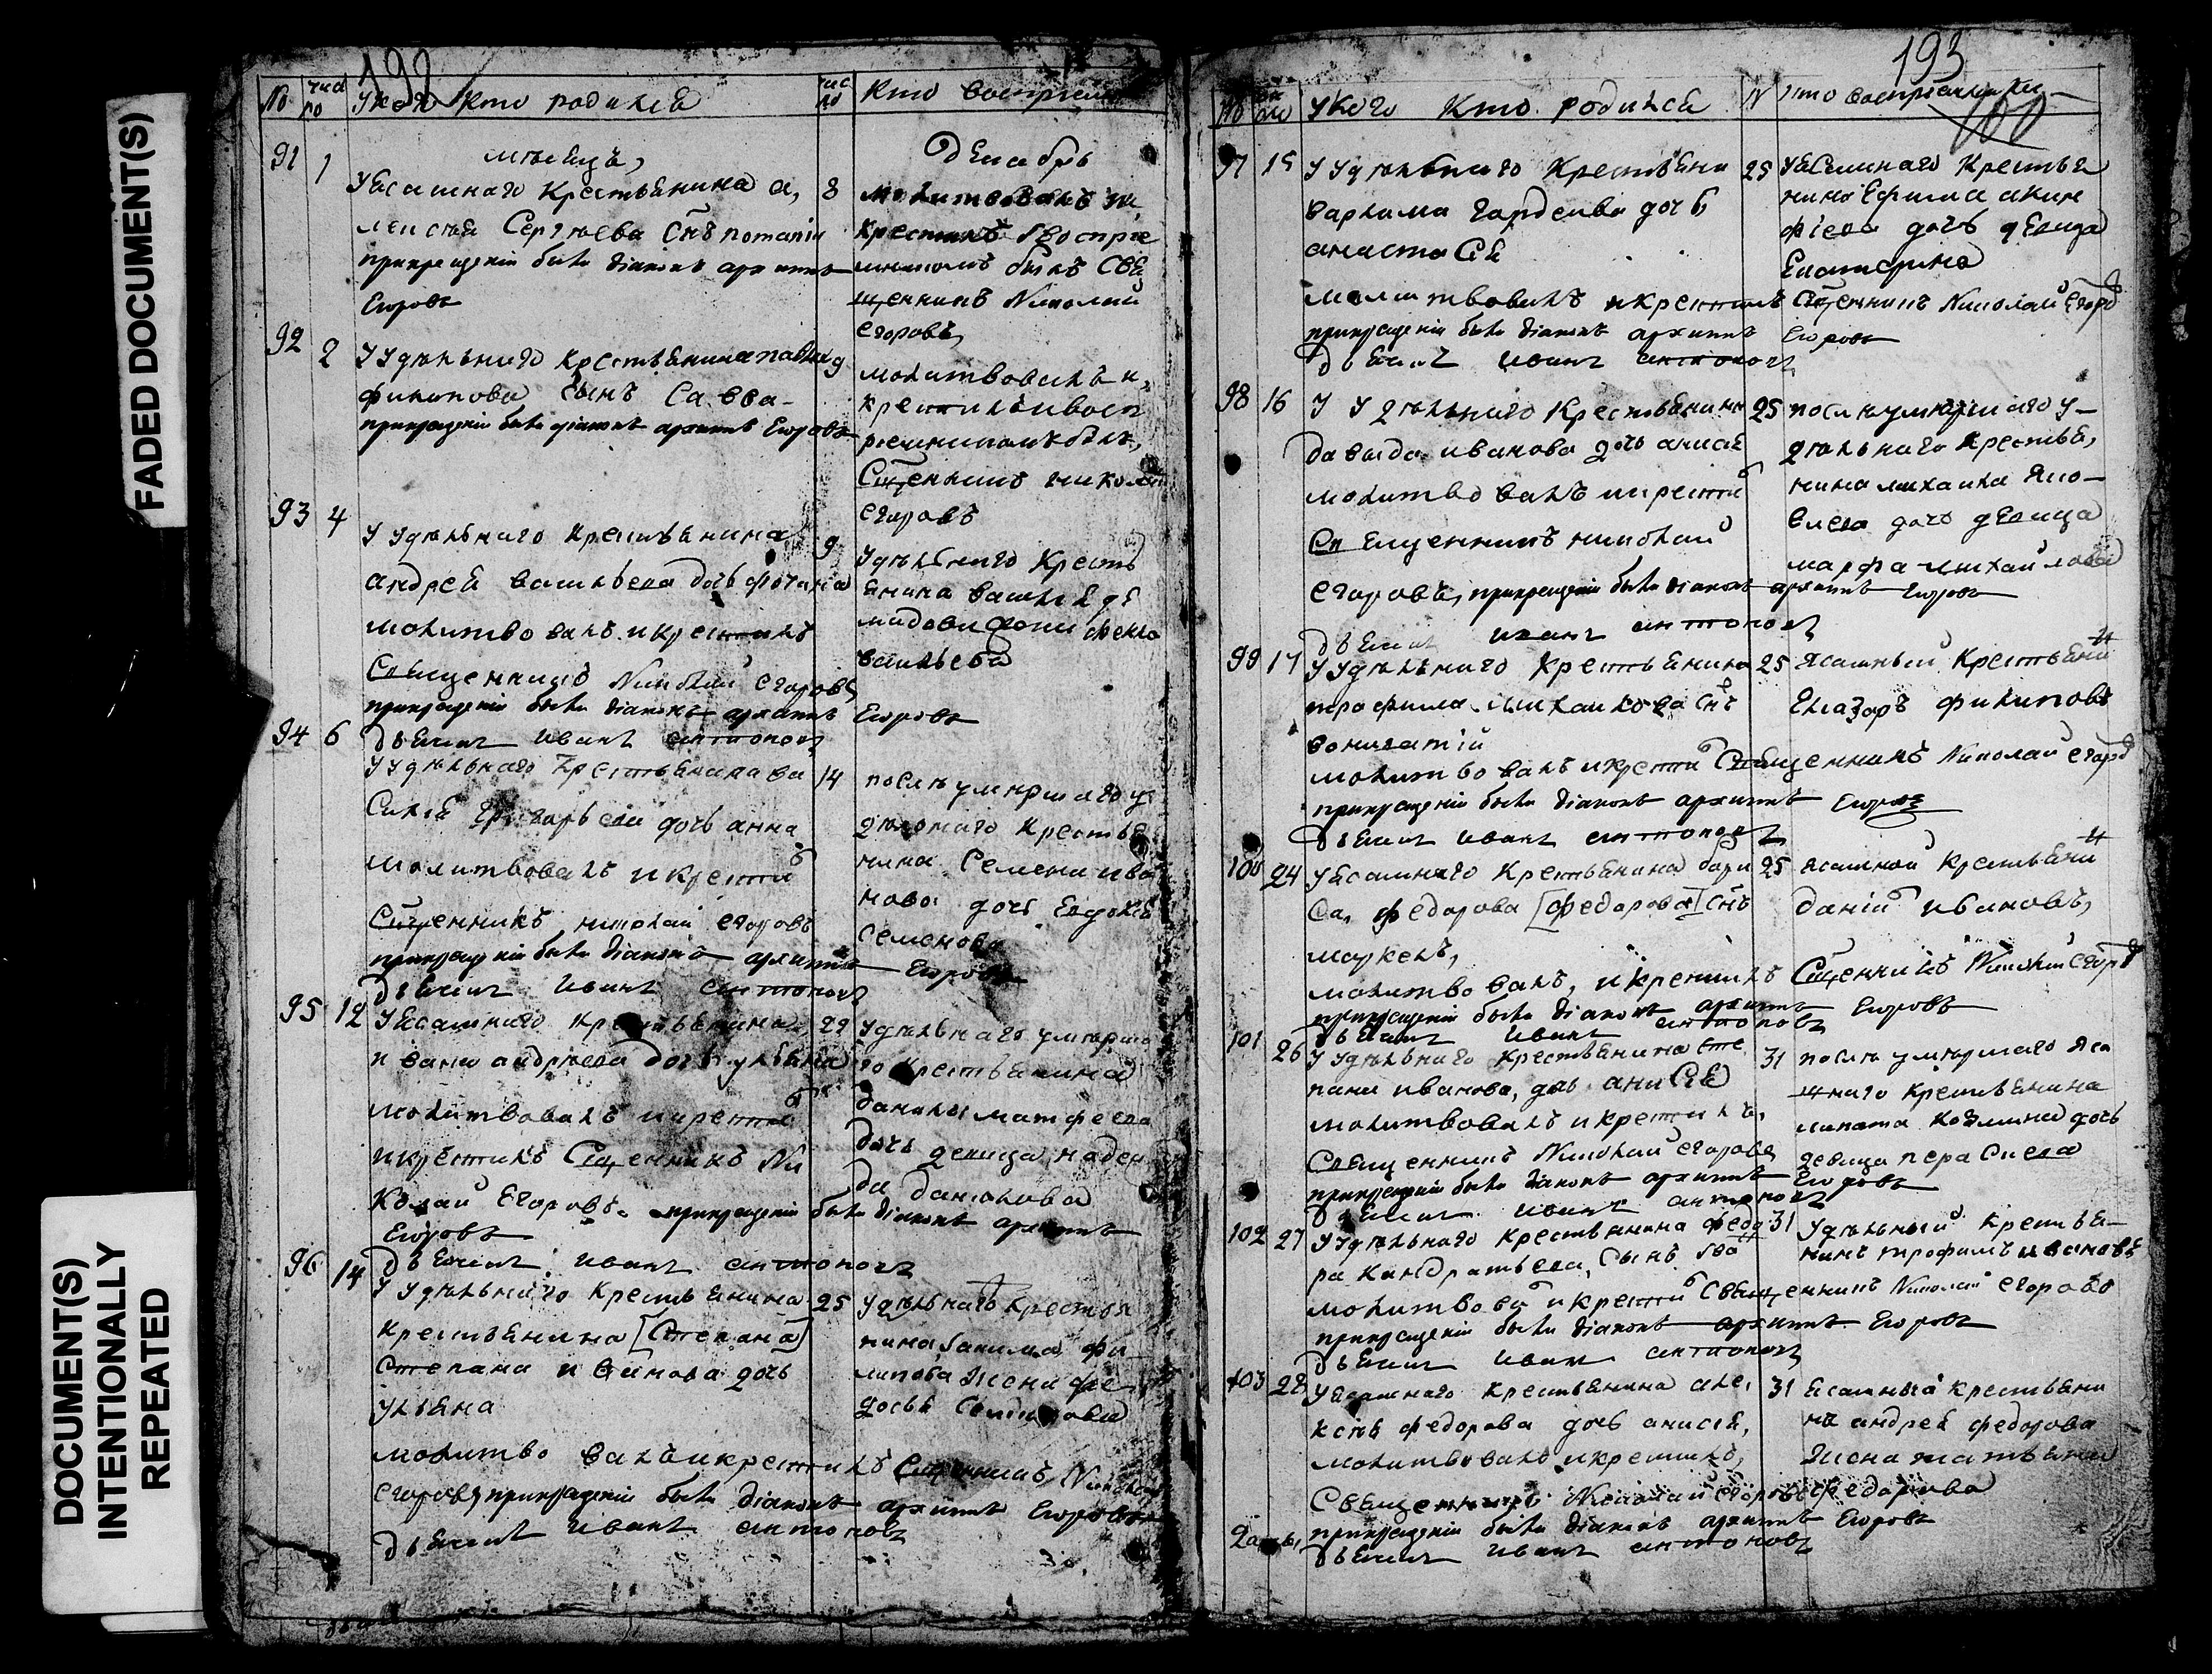 FADED DOCUMENT(S)
DOCUMENT(S)
INTENTIONALLY
REPEATED
192
№ число У кого кто родился число Кто восприем
мѣсецъ,
Декабрь
91 1
Уясашнаго Крестьянина а,
лексѣя Сергѣева Снъ потапій
прикрещеніи былъ діаконъ архиппъ
Егоровъ
8
молитвовалъ и,
крестилъ ївоспрїе
мникомъ былъ Свя
щенникъ Николай
егоровъ,
92 2
Уудѣльнаго крестьянина павла
филипова сынъ Савва
прикрещеніи былъ діаконъ архиппъ Егоровъ
9
молитвовалъ и,
крестилъ ивосп
реемникомъ былъ,
Сщенникъ николай
егоровъ
93 4
Уудѣльнаго крестьянина
андрея васильева дочь фотинія
молитвовалъ икрестилъ
Священникъ Николай егоровъ
прикрещеніи былъ діаконъ архиппъ Егоровъ
дьячекъ иванъ антоновъ
9
Удѣльнаго Кресть
янина василя де
мидова жены фекла
васильева
94 6
Уудѣльнаго Крестьянина ва
Силя григорьева дочь анна
молитвовалъ икрести
Сщенникъ николай егоровъ
прикрещеніи былъ діаконъ архиппъ Егоровъ
дьячекъ иванъ антоновъ
14
послѣ умершаго у
дѣльнаго Крестья
нина Семена ива
нова дочь Евдокія
Семенова
95 12
Уясашнаго Крестьянина
ивана андрѣева дочь ульяна
молитвовалъ икрести
икрестилъ Сщенникъ Ни
колай Егоровъ прикрещеніи былъ діаконъ архиппъ
Егоровъ
дьячекъ иванъ антоновъ
22
Удѣльнаго умерша
го Крестьянина
данилы матфеева
дочь девица надеж
да данилова
96 14
Уудѣльнаго Крестьянина
крестьянина [Степана]
Степана дочь
ульяна
молитвовалъ икрестилъ Сщенникъ Николай
егоровъ прикрещеніи былъ діаконъ архиппъ Егоровъ
дьячекъ иванъ антоновъ
25
Удѣльнаго Крестья
нина фи
липова жена фе
досья
193
100
№ Укого кто родился № кто
97 15
У Удѣльнаго Крестьяни
варлама гордеива дочь
анастасія
молитвовалъ икрестилъ Сщенникъ Николай Егоро
прикрещеніи былъ діаконъ архиппъ Егоровъ
дьячекъ иванъ антоновъ
25
Уясашнаго Крестья
нина Ефима акин
фіева дочь девица
Екатерина
98 16
У Удѣльнаго Крестьянина
давыда иванова дочь анисія
молитвовалъ икрести
Священникъ николай
егоровъ, прикрещеніи былъ діаконъ архиппъ Егоровъ
дьячекъ иванъ антоновъ
25
послѣ умершаго у
дѣльнаго Крестья,
нина михаила Яко
влева дочь девица
марфа михайлова
99 17
Уудѣльнаго крестьянина
трофима михаилова Снъ
вонифатій
молитвовалъ икрести Священникъ Николай егоро
прикрещеніи былъ діаконъ архиппъ Егоровъ
дьячекъ иванъ антоновъ
25
Ясашный Крестьяни
Елазаръ филиповъ
100 24
Уясашнаго Крестьянина бори
са, федорова [федорова] Снъ
маркелъ,
молитвовалъ, икрестилъ Сщенникъ Николай егоро
прикрещеніи былъ діаконъ архиппъ Егоровъ
дьячекъ иванъ антоновъ
25
Ясашной крестьяни
даній ивановъ,
101 26
Уудѣльнаго Крестьянина сте
пана иванова, дочь анисія
молитвовалъ икрестилъ,
Священникъ Николай егоровъ
прикрещеніи былъ діаконъ архиппъ Егоровъ
дьячекъ иванъ антоновъ
31
послѣ умершаго яса
шнаго крестьянина
липата козмина дочь
девица
102 27
Уудѣльнаго крестьянина федо
ра Кандратьева, Сынъ
молитвова икрести Священникъ Николай егоровъ
прикрещеніи былъ діаконъ архиппъ Егоровъ
дьячекъ иванъ антоновъ
31
Удѣльный крестья
нинъ трофимъ ивановъ
103 28
Уясашнаго крестьянина але,
ксѣя федорова дочь анисія,
молитвовалъ икрестилъ,
Священникъ Николай егоровъ
прикрещеніи былъ діаконъ архиппъ Егоровъ
дьячекъ иванъ антоновъ
31
Ясашнаго крестьяни
на андрея федорова
жена татьяна
федорова